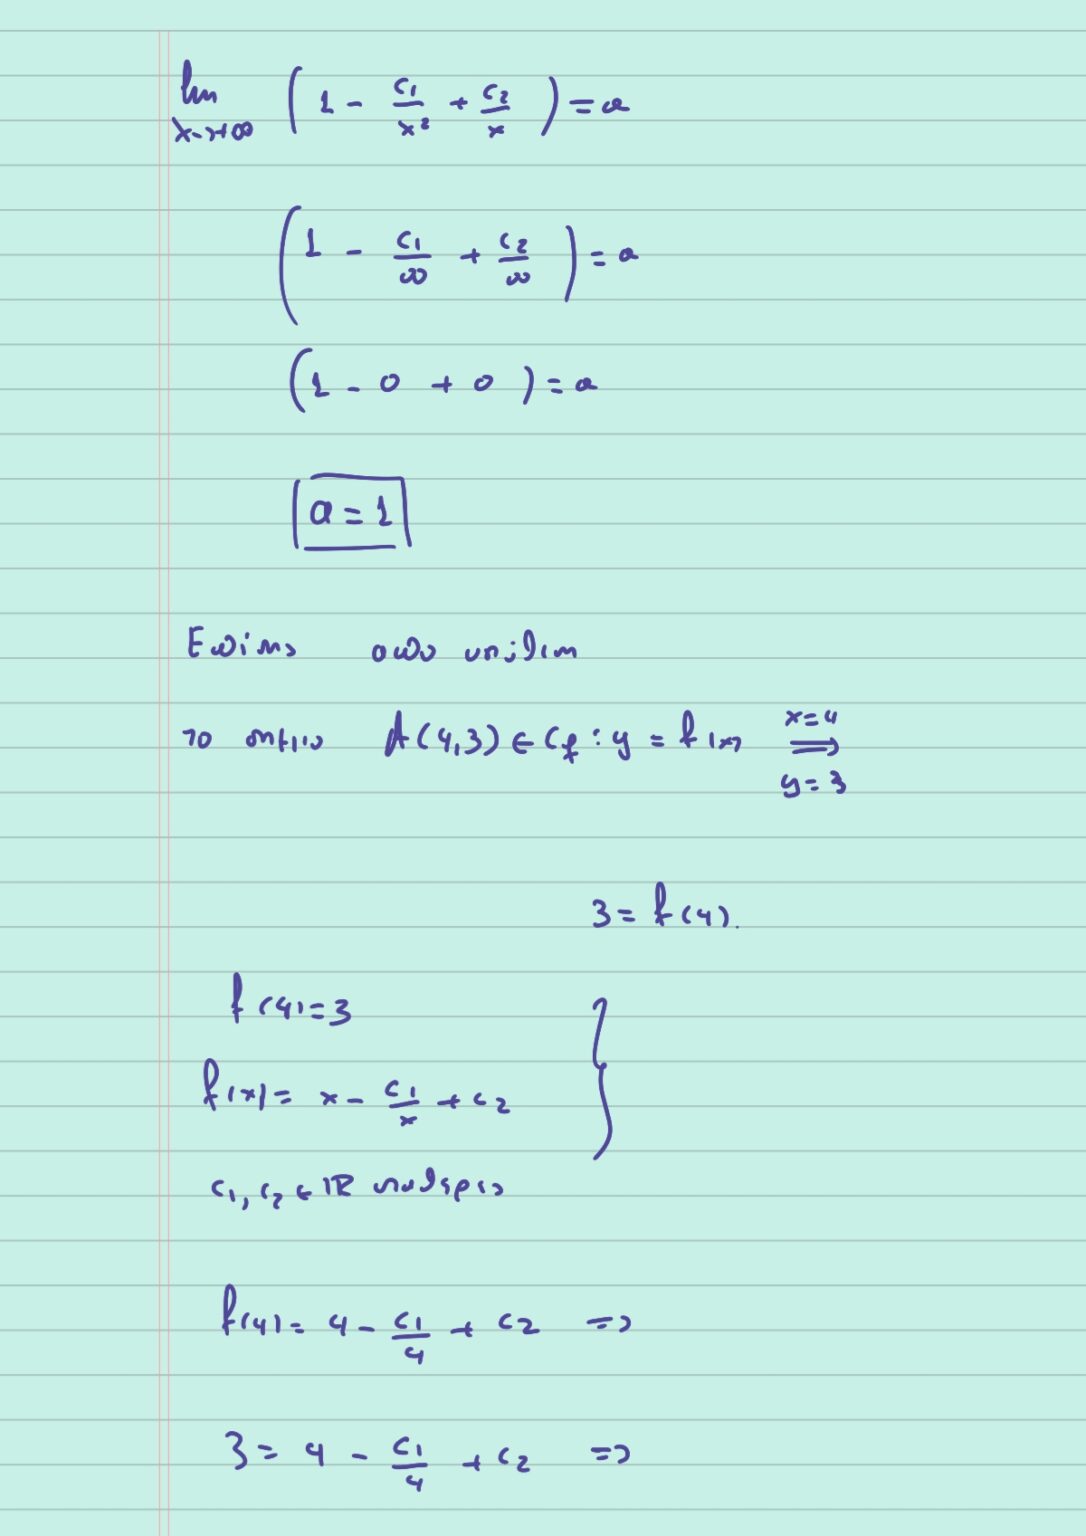 lim x→+∞ (1 - c₁/x² + c₂/x) = a
(1 - c₁/∞ + c₂/∞) = a
(1 - 0 + 0) = a
a = 1
Επίσης από υπόθεση
το σημείο A(4,3) ∈ Cf : y = f(x) x=4 ⟹ y=3
3 = f(4).
f(4) = 3
f(x) = x - c₁/x + c₂ }
c₁, c₂ ∈ ℝ σταθερές
f(4) = 4 - c₁/4 + c₂ ⇒
3 = 4 - c₁/4 + c₂ ⇒